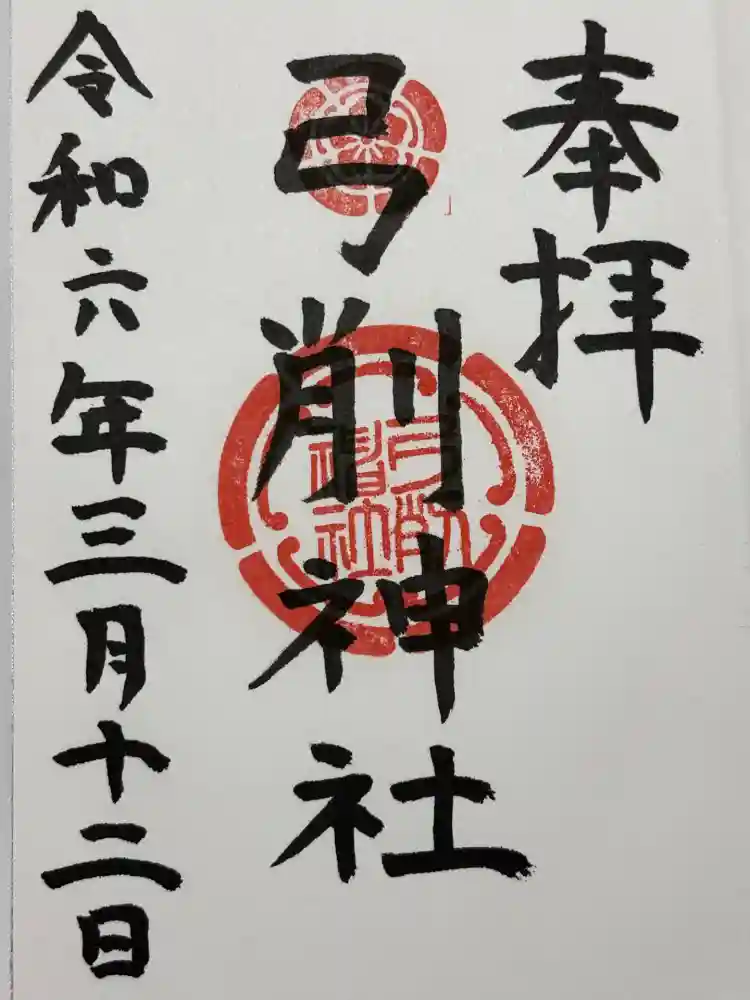 奉拝
弓削神社
弓削
神社
令和六年三月十二日